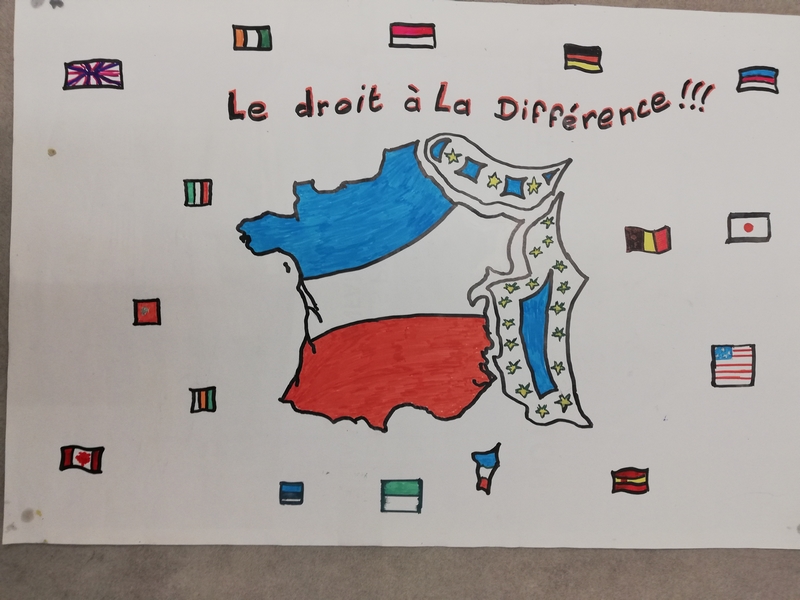 Le droit à La Différence!!!